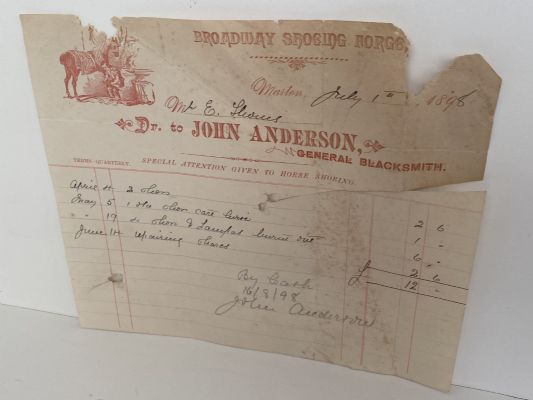 BROADWAY SHOEING FORGE,
Marton, July 1st 1898
Mr E. Thoms
Dr. to JOHN ANDERSON,
GENERAL BLACKSMITH.
TERMS—QUARTERLY. SPECIAL ATTENTION GIVEN TO HORSE SHOEING.
April 4 2 shoes 2 6
May 5 1 shoe 1 "
" 19 4 shoes & Lampas burnt out 6 "
June 14 repairing shares 2 6
£ 12 "
By Cash
16/8/98
John Anderson